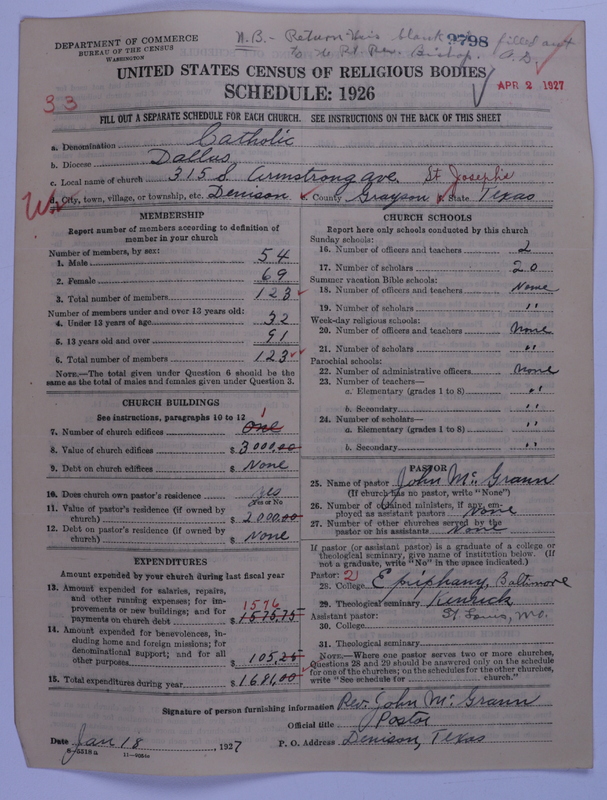 DEPARTMENT OF COMMERCE
BUREAU OF THE CENSUS
WASHINGTON
N.B. - Return this blank filled out
to Rt. Rev. Bishop.
9798
APR 2 1927
UNITED STATES CENSUS OF RELIGIOUS BODIES
SCHEDULE: 1926
33
FILL OUT A SEPARATE SCHEDULE FOR EACH CHURCH. SEE INSTRUCTIONS ON THE BACK OF THIS SHEET
a. Denomination Catholic
b. Diocese Dallas
c. Local name of church 315 S. Armstrong ave. St Josephs
d. City, town, village, or township, etc. Denison e. County Grayson f. State Texas
MEMBERSHIP
Report number of members according to definition of
member in your church
Number of members, by sex:
1. Male 54
2. Female 69
3. Total number of members 123
Number of members under and over 13 years old:
4. Under 13 years of age 32
5. 13 years old and over 91
6. Total number of members 123
NOTE.—The total given under Question 6 should be the
same as the total of males and females given under Question 3.
CHURCH BUILDINGS
See instructions, paragraphs 10 to 12
7. Number of church edifices One 1
8. Value of church edifices $ 3000.00
9. Debt on church edifices $ None
10. Does church own pastor's residence Yes
Yes or No
11. Value of pastor's residence (if owned by
church) $ 2000.00
12. Debt on pastor's residence (if owned by
church) $ None
EXPENDITURES
Amount expended by your church during last fiscal year
13. Amount expended for salaries, repairs,
and other running expenses; for im-
provements or new buildings; and for
payments on church debt $ 1575.75 1576
14. Amount expended for benevolences, in-
cluding home and foreign missions; for
denominational support; and for all
other purposes $ 105.25
15. Total expenditures during year $ 1681.00
CHURCH SCHOOLS
Report here only schools conducted by this church
Sunday schools:
16. Number of officers and teachers 2
17. Number of scholars 20
Summer vacation Bible schools:
18. Number of officers and teachers None
19. Number of scholars ''
Week-day religious schools:
20. Number of officers and teachers None
21. Number of scholars ''
Parochial schools:
22. Number of administrative officers None
23. Number of teachers—
a. Elementary (grades 1 to 8) ''
b. Secondary ''
24. Number of scholars—
a. Elementary (grades 1 to 8) ''
b. Secondary ''
PASTOR
25. Name of pastor John McGrann
(If church has no pastor, write "None")
26. Number of ordained ministers, if any, em-
ployed as assistant pastors None
27. Number of other churches served by the
pastor or his assistants None
If pastor (or assistant pastor) is a graduate of a college or
theological seminary, give name of institution below. (If
not a graduate, write "No" in the space indicated.)
Pastor: 21
28. College Epiphany, Baltimore
29. Theological seminary Kenrick
Assistant pastor: St. Louis, Mo.
30. College
31. Theological seminary
NOTE.—Where one pastor serves two or more churches,
Questions 28 and 29 should be answered only on the schedule
for one of the churches; on the schedules for the other churches,
write "See schedule for church."
Signature of person furnishing information Rev. John McGrann
Official title Pastor
Date Jan 18 1927 P. O. Address Denison, Texas